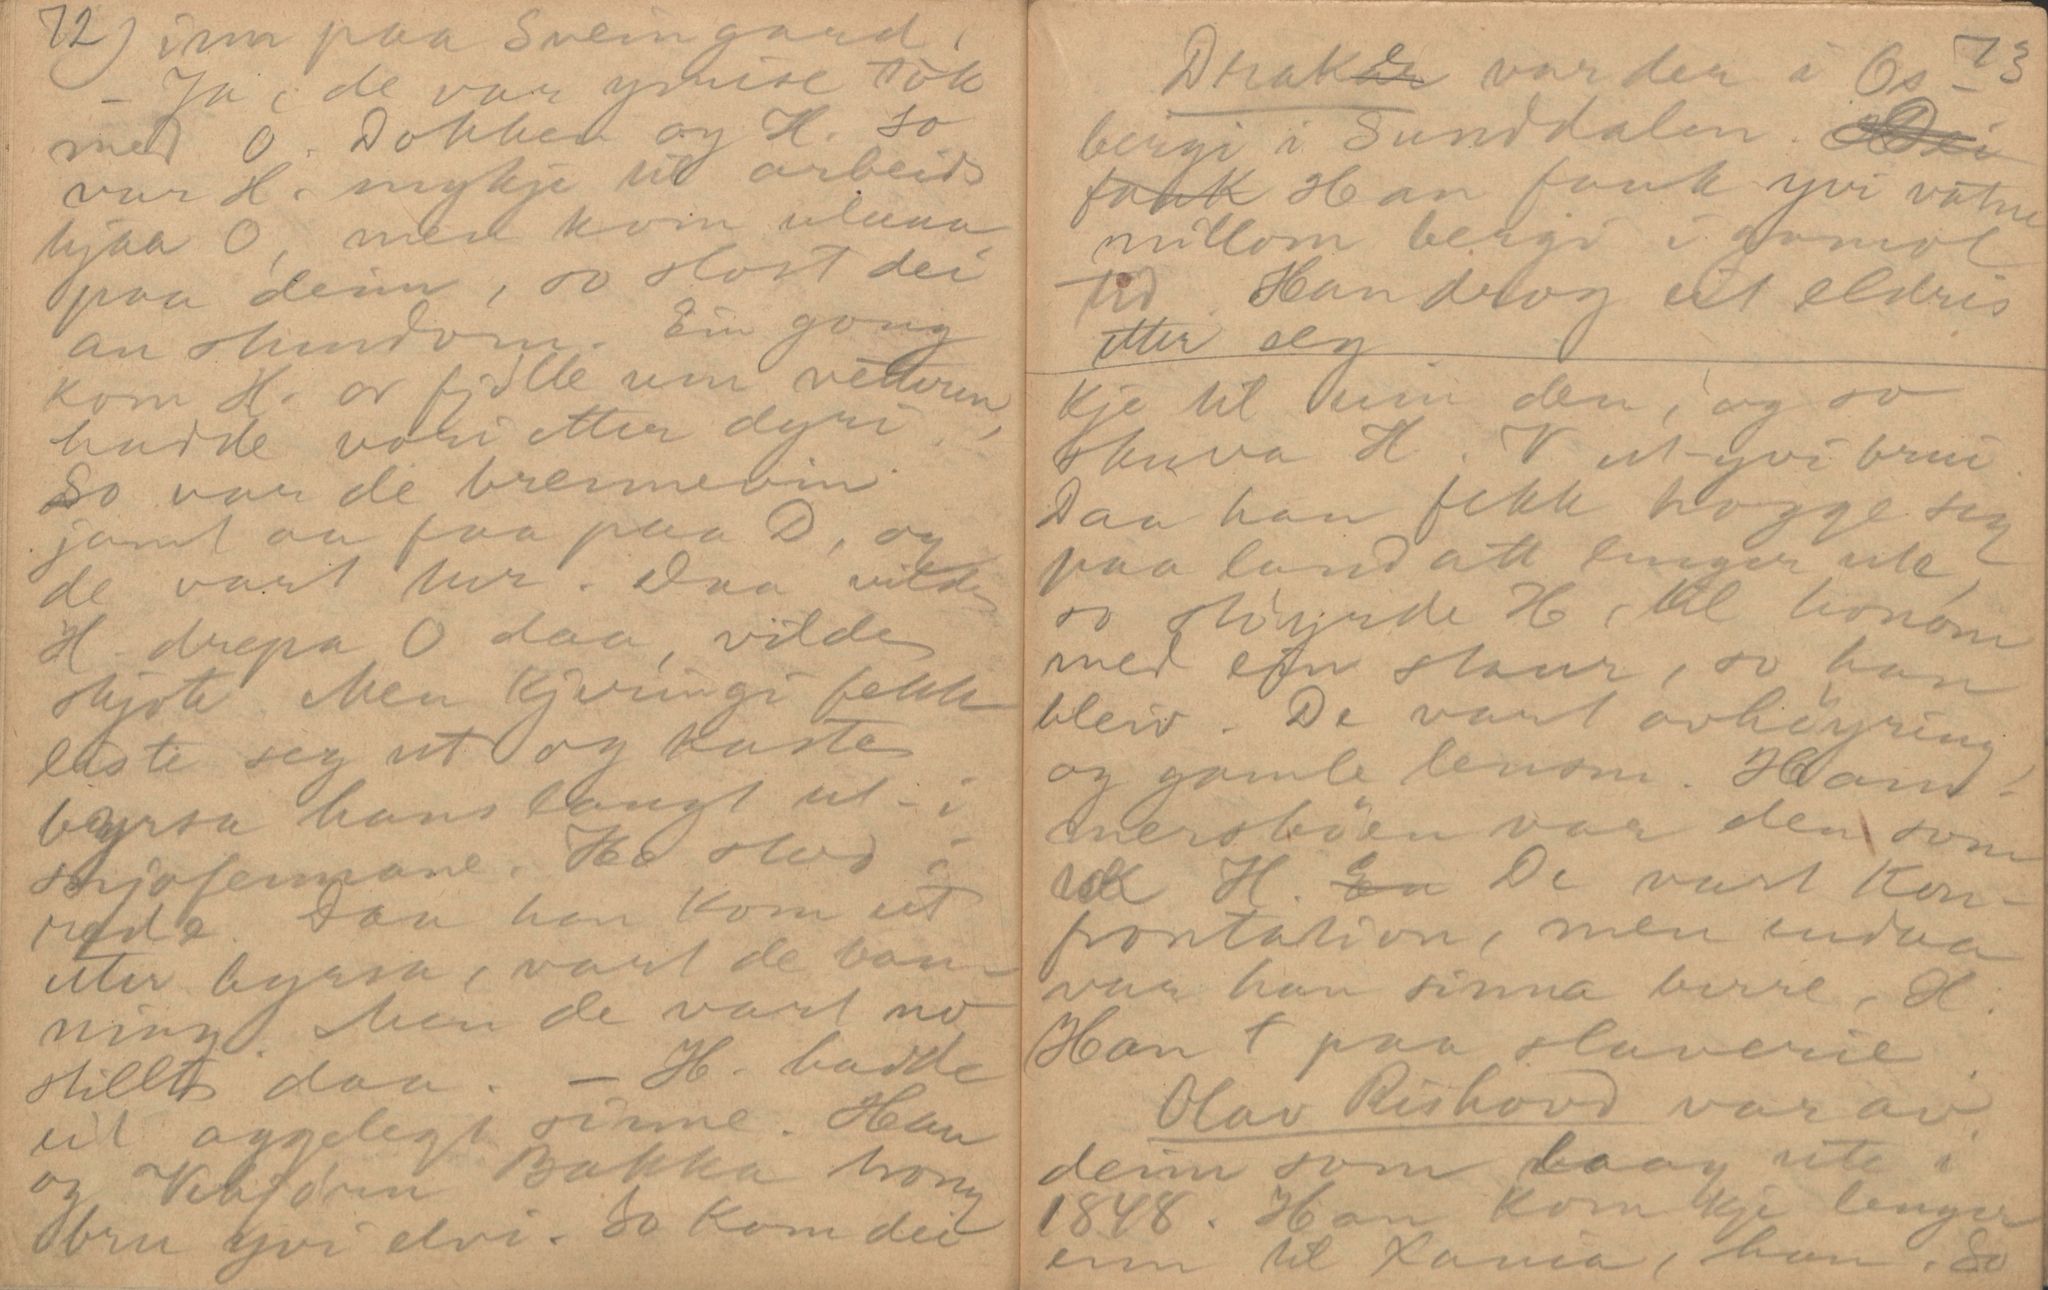 72) inn paa Sveingard,
– Ja, de var ymise tök
med O. Dokken og H. So
var H. mykje til arbeids
hjaa O, men kom ulaaa
paa deim, so slost dei
au stundom. Ein gong
kom H. or fjölle um vetteren,
hadde vori etter dyri.
So var de brennevin
jamt aa faa paa D, og
de vart tur. Daa vilde
H drepa O daa, vilde
skjota. Men kjeringi fekk
liste seg ut og kasta
byrsa hans langt ut i
snjofennane. Ho stod i
rade. Daa han kom ut
etter byrsa, vart de ban-
ning. Men de vart no
stillt daa. – H. hadde
eit oggelegt sinne. Han
og Vebjörn Bakka hong
bru yvi elvi. So kom dei
73
Draken var der i Os-
bergi i Sunddalen. Dei
fauk Han fauk yvi vatne
millom bergi i gamal
tid. Han drog eit eldris
etter seg
kje til min den, og so
skuva H. V ut-yvi brui.
Daa han fekk hogge seg
paa land att lenger ute,
so stöyrde H, til honom
med ein staur, so han
bleiv. De vart avhöyring,
og gamle lensm. Ham-
mersböen var den som
tok H. En De vart Kon-
frontation, men endaa
var han sinna berre, H.
Han † paa slaverie.
Olav Rishovd var av
deim som laag ute i
1848. Han kom kje lenger
enn til Xania, han. So